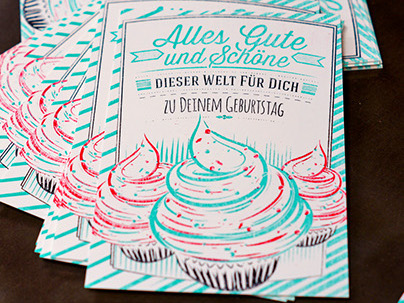 Alles Gute
und Schöne
DIESER WELT FÜR DICH
ZU DEINEM GEBURTSTAG